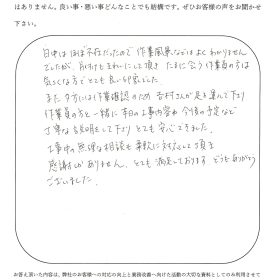 はありません。良い事・悪い事どんなことでも結構です。ぜひお客様の声をお聞かせ
下さい。
日中はほぼ不在だったので作業風景などはよくわかりません
でしたが、片付けもきれいにして頂き たまに会う作業員の方は
気さくな方でとても良い印象でした
また夕方には作業確認のため 吉村さんが足を運んで下り
作業員の方と一緒に本日の工事内容や今後の予定など
丁寧な説明をして下り とても安心できました。
工事中の無理な相談も柔軟に対応して頂き
感謝しかありません。とても満足しております どうもありがとう
ございました。
お答え頂いた内容は、弊社のお客様への対応の向上と業務改善へ向けた活動の大切な資料としてのみ利用させて